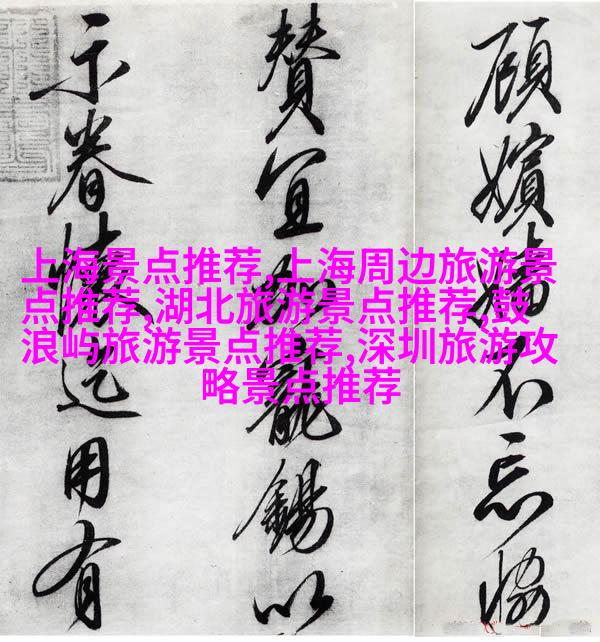 上海景点推荐,上海周边旅游景
点推荐,湖北旅游景点推荐,鼓
浪屿旅游景点推荐,深圳旅游攻
略景点推荐
顧嬪不忘協
賛宜寵錫以
示眷用有